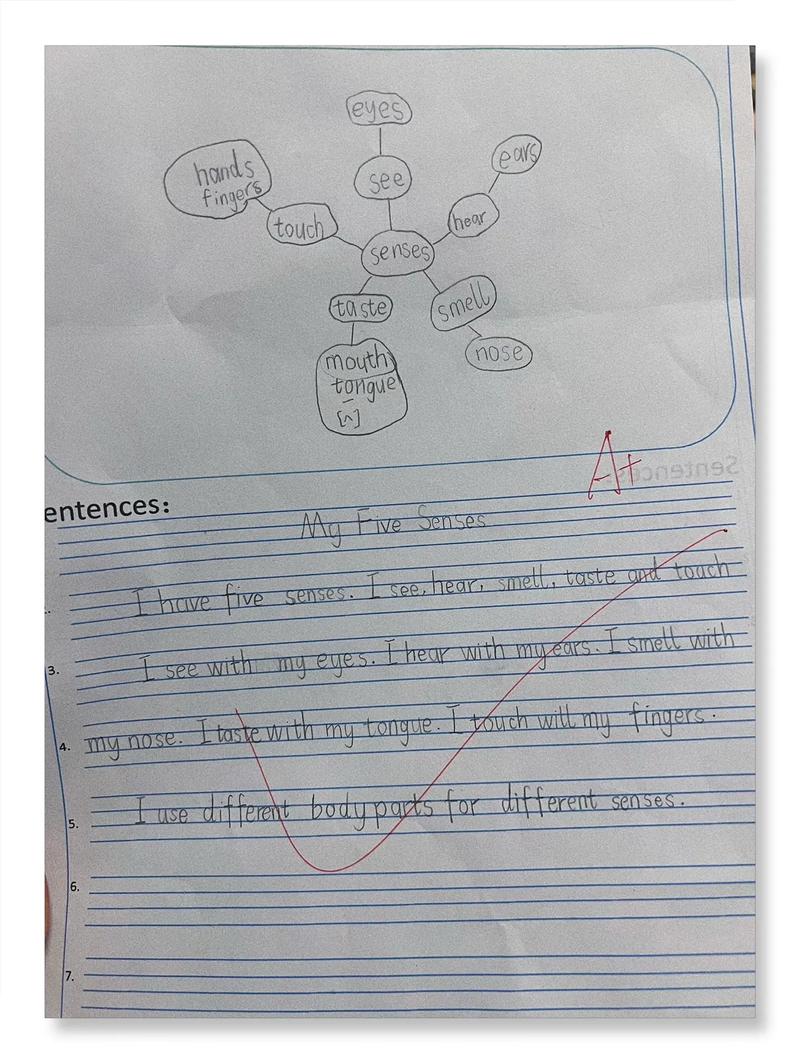 eyes
ears
hands
fingers
see
hear
touch
senses
taste
smell
mouth
tongue
[ʌ]
nose
A+
Sentences:
entences:
My Five Senses
I have five senses. I see, hear, smell, taste and touch
3. I see with my eyes. I hear with my ears. I smell with
4. my nose. I taste with my tongue. I touch will my fingers.
5. I use different body parts for different senses.
6.
7.